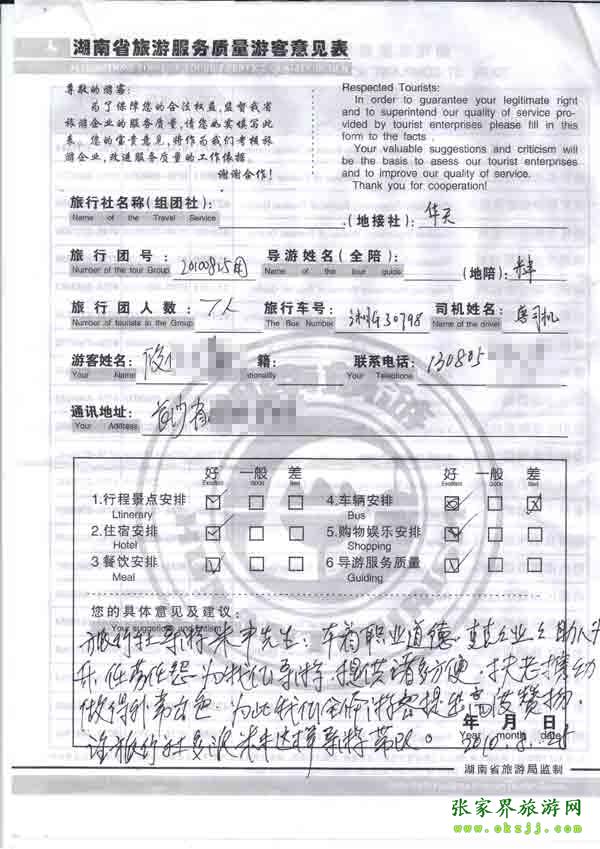 湖南省旅游服务质量游客意见表
尊敬的游客:
为了保障您的合法权益,监督我省
旅游企业的服务质量,请您如实填写此
表。您的宝贵意见,将作为我们考核旅
游企业,改进服务质量的工作依据。
谢谢合作!
Respected Tourists:
In order to guarantee your legitimate right
and to superintend our quality of service pro-
vided by tourist enterprises please fill in this
form to the facts .
Your valuable suggestions and criticism will
be the basis to asess our tourist enterprises
and to improve our quality of service.
Thank you for cooperation!
旅行社名称(组团社): (地接社): 华天
Name of the Travel Service
旅行团号: 20100825 导游姓名(全陪): (地陪): 朱申
Number of the tour Group Name of the tour guide
旅行团人数: 人 旅行车号: 湘G30798 司机姓名: 唐司机
Number of tourists in the Group The Bus Number Name of the driver
游客姓名: 段 籍: 联系电话: 130805
Your Name ationality Your Telephone
通讯地址: 省
Your Address
好 一般 差 好 一般 差
Excellent Good Bad Excellent Good Bad
1.行程景点安排 4.车辆安排
Ltinerary Bus
2.住宿安排 5.购物娱乐安排
Hotel Shopping
3 餐饮安排 6 导游服务质量
Meal Guiding
您的具体意见及建议:
Your suggestion and criticism
旅行社导游朱申先生: 有着职业道德, 助人为
任劳任怨 为我们导游, 提供诸多方便, 扶老携幼
做得非常出色. 为此我们全体游客提出高度赞扬,
旅行社多 导游带队。
年 月 日
Year month date
2010. 8. 28
湖南省旅游局监制
张家界旅游网
www.okzjj.com